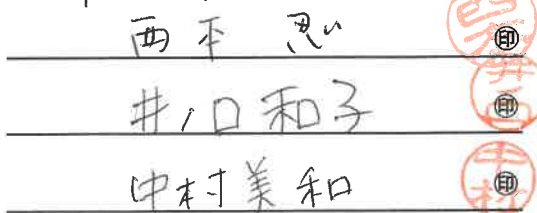 西平 忍 ㊞
井ノ口和子 ㊞
中村美和 ㊞